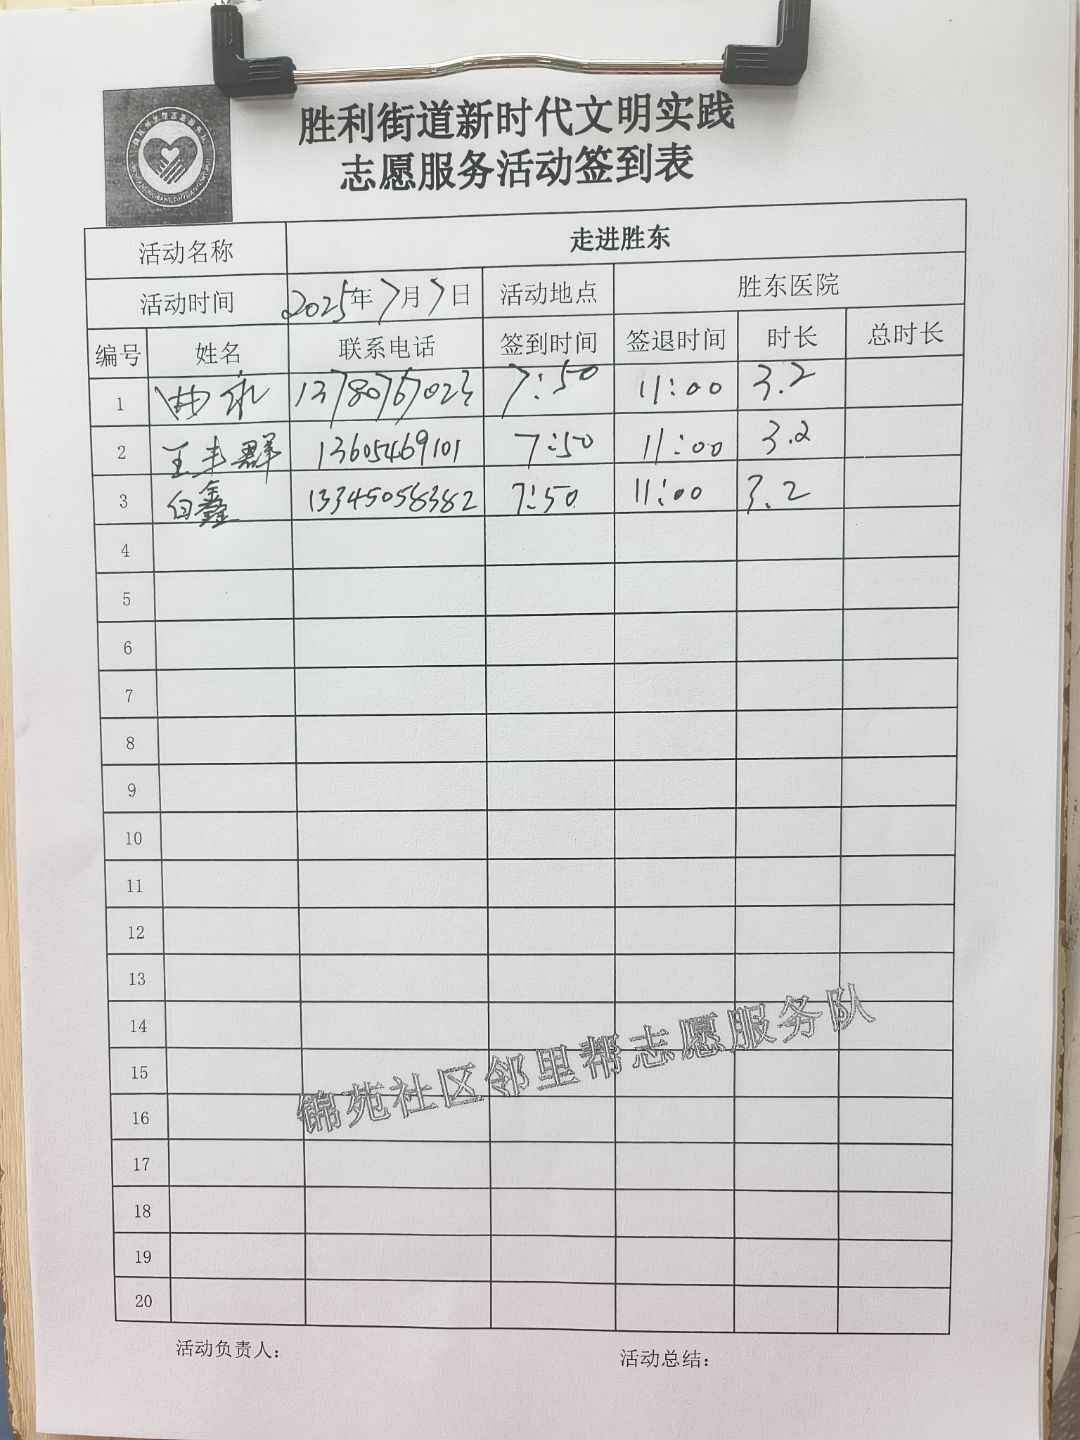 胜利街道新时代文明实践
志愿服务活动签到表
活动名称 走进胜东
活动时间 2025年7月7日 活动地点 胜东医院
编号 姓名 联系电话 签到时间 签退时间 时长 总时长
1 13780767023 7:50 11:00 3.2
2 王丰群 13605469101 7:50 11:00 3.2
3 白鑫 13345058382 7:50 11:00 3.2
4
5
6
7
8
9
10
11
12
13
14
15
16
17
18
19
20
锦苑社区邻里帮志愿服务队
活动负责人: 活动总结: